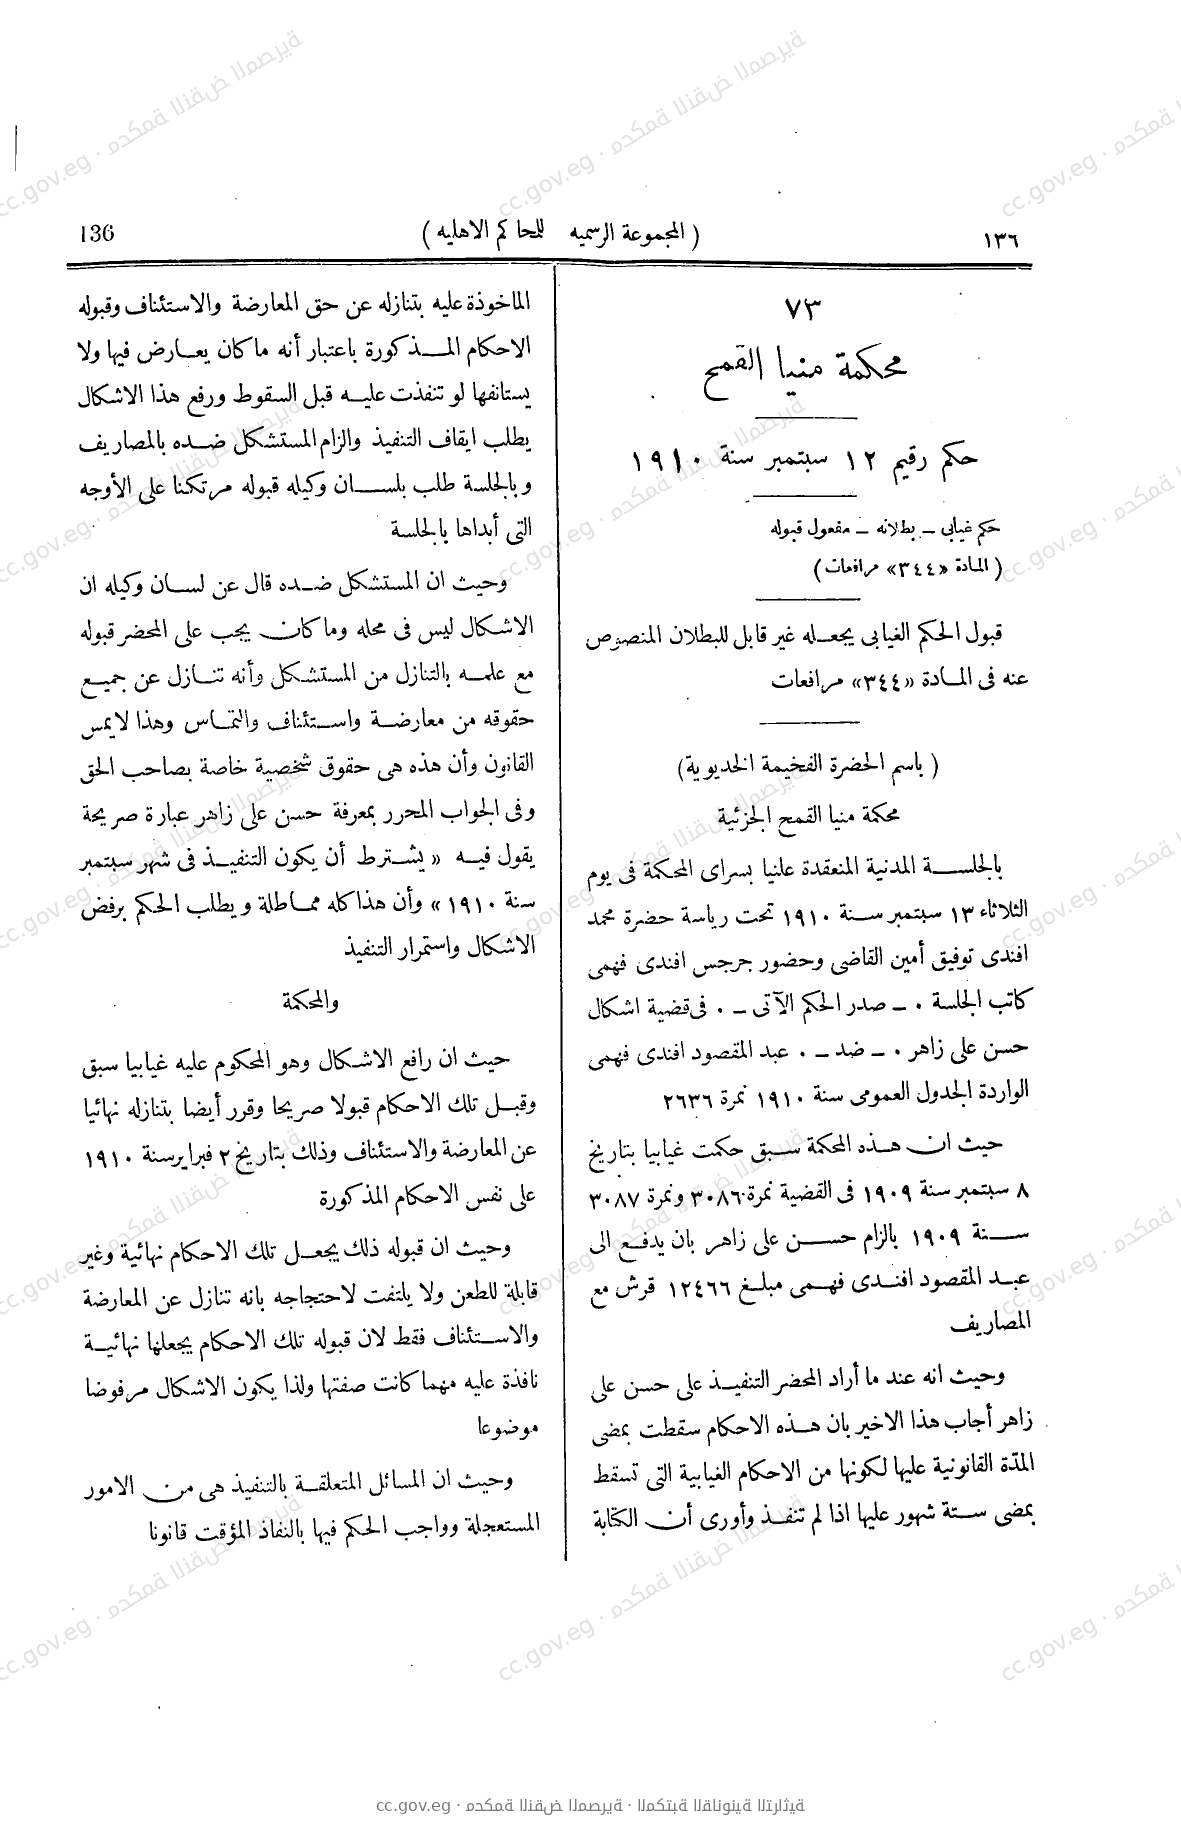 136
( المجموعة الرسميه للمحاكم الاهليه )
١٣٦
٧٣
محكمة منيا القمح
حكم رقيم ١٢ سبتمبر سنة ١٩١٠
حكم غيابي – بطلانه – مفعول قبوله
( المادة «٣٤٤» مرافعات )
قبول الحكم الغيابى يجعله غير قابل للبطلان المنصوص
عنه فى المادة «٣٤٤» مرافعات
( باسم الحضرة الفخيمة الخديوية )
محكمة منيا القمح الجزئية
بالجلسة المدنية المنعقدة علنيا بسراى المحكمة فى يوم
الثلاثاء ١٣ سبتمبر سنة ١٩١٠ تحت رياسة حضرة محمد
افندى توفيق أمين القاضى وحضور جرجس افندى فهمى
كاتب الجلسة ٠ – صدر الحكم الآتى – ٠ فى قضية اشكال
حسن على زاهر ٠ – ضد – ٠ عبد المقصود افندى فهمى
الواردة الجدول العمومى سنة ١٩١٠ نمرة ٢٦٣٦
حيث ان هذه المحكمة سبق حكمت غيابيا بتاريخ
٨ سبتمبر سنة ١٩٠٩ فى القضية نمرة ٣٠٨٦ ونمرة ٣٠٨٧
سنة ١٩٠٩ بالزام حسن على زاهر بان يدفع الى
عبد المقصود افندى فهمى مبلغ ١٢٤٦٦ قرش مع
المصاريف
وحيث انه عند ما أراد المحضر التنفيذ على حسن على
زاهر أجاب هذا الاخير بان هذه الاحكام سقطت بمضى
المدّة القانونية عليها لكونها من الاحكام الغيابية التى تسقط
بمضى ستة شهور عليها اذا لم تنفذ وأورى أن الكتابة
الماخوذة عليه بتنازله عن حق المعارضة والاستئناف وقبوله
الاحكام المذكورة باعتبار أنه ما كان يعارض فيها ولا
يستانفها لو تنفذت عليه قبل السقوط ورفع هذا الاشكال
يطلب ايقاف التنفيذ والزام المستشكل ضده بالمصاريف
وبالجلسة طلب بلسان وكيله قبوله مرتكنا على الأوجه
التى أبداها بالجلسة
وحيث ان المستشكل ضده قال عن لسان وكيله ان
الاشكال ليس فى محله وما كان يجب على المحضر قبوله
مع علمه بالتنازل من المستشكل وأنه تنازل عن جميع
حقوقه من معارضة واستئناف والتماس وهذا لا يمس
القانون وأن هذه هى حقوق شخصية خاصة بصاحب الحق
وفى الجواب المحرر بمعرفة حسن على زاهر عبارة صريحة
يقول فيه « يشترط أن يكون التنفيذ فى شهر سبتمبر
سنة ١٩١٠ » وأن هذا كله مماطلة ويطلب الحكم برفض
الاشكال واستمرار التنفيذ
والمحكمة
حيث ان رافع الاشكال وهو المحكوم عليه غيابيا سبق
وقبل تلك الاحكام قبولا صريحا وقرر أيضا بتنازله نهائيا
عن المعارضة والاستئناف وذلك بتاريخ ٢ فبراير سنة ١٩١٠
على نفس الاحكام المذكورة
وحيث ان قبوله ذلك يجعل تلك الاحكام نهائية وغير
قابلة للطعن ولا يلتفت لاحتجاجه بانه تنازل عن المعارضة
والاستئناف فقط لان قبوله تلك الاحكام يجعلها نهائية
نافذة عليه مهما كانت صفتها ولذا يكون الاشكال مرفوضا
موضوعا
وحيث ان المسائل المتعلقة بالتنفيذ هى من الامور
المستعجلة وواجب الحكم فيها بالنفاذ المؤقت قانونا
cc.gov.eg · محكمة النقض المصرية · المكتبة القانونية التراثية